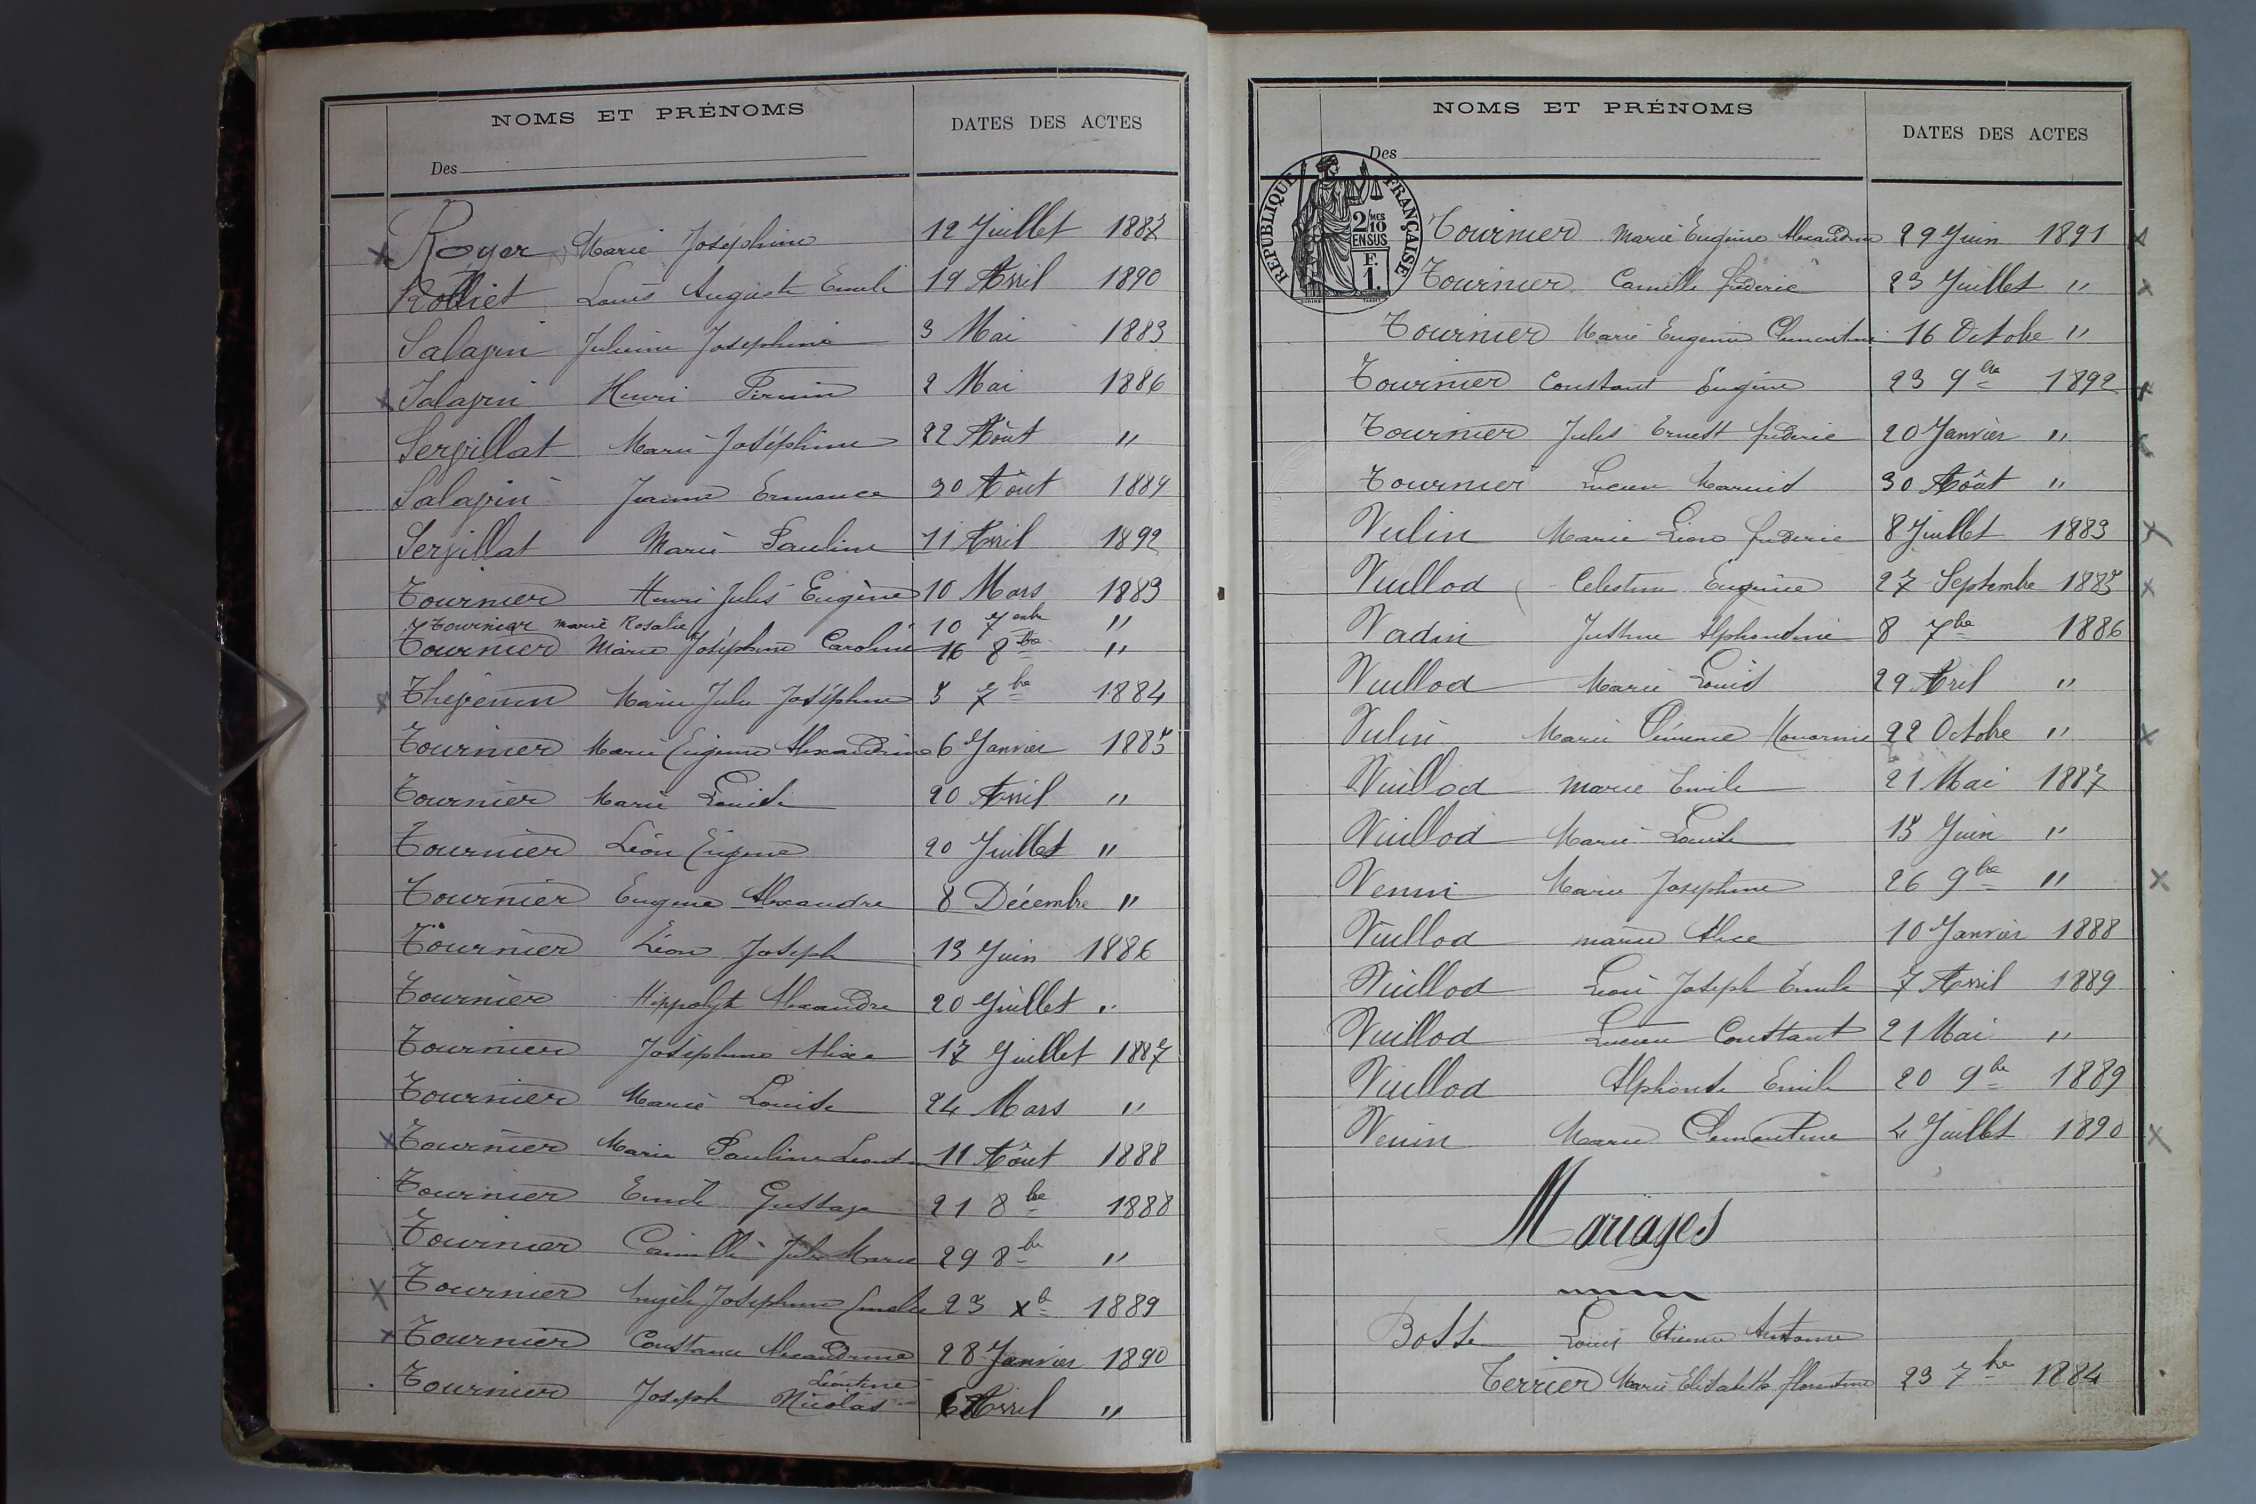 NOMS ET PRÉNOMS
DATES DES ACTES
Des
Royer Marie Joséphine 12 Juillet 1887
Rolliet Louis Auguste Emile 19 Avril 1890
Salavin Julienne Josephine 3 Mai 1883
Salavin Henri Firmin 2 Mai 1886
Servillat Marie Joséphine 22 Aôut "
Salavin Jeanne Ermance 30 Aôut 1889
Servillat Marie Pauline 11 Avril 1892
Tournier Henri Jules Eugène 10 Mars 1883
Tournier marie Rosalie 10 7embre "
Tournier Marie Joséphine Caroline 16 8bre "
Thévenin Marie Julie Joséphine 5 7bre 1884
Tournier Marie Eugénie Alexandrine 6 Janvier 1885
Tournier Marie Louise 20 Avril "
Tournier Léon Eugène 20 Juillet "
Tournier Eugène Alexandre 8 Décembre "
Tournier Léon Joseph 13 Juin 1886
Tournier Hippolyte Alexandre 20 Juillet "
Tournier Joséphine Alixe 17 Juillet 1887
Tournier Marie Louise 24 Mars "
Tournier Marie Pauline 11 Aôut 1888
Tournier Emile Gustave 21 8bre 1888
Tournier Camille Jules Marie 29 8bre "
Tournier Angèle Joséphine 23 xb 1889
Tournier Constance Alexandrine 28 Janvier 1890
Léontine
Tournier Joseph Nicolas 6 Avril "
NOMS ET PRÉNOMS
DATES DES ACTES
Des
RÉPUBLIQUE FRANÇAISE
2/10 MES
EN SUS
F.
1.
Tournier Marie Eugénie Alexandrine 29 Juin 1891
Tournier Camille fréderic 23 Juillet "
Tournier Marie Eugenie Clementine 16 Octobre "
Tournier Constant Eugène 23 9bre 1892
Tournier Jules Ernest fréderic 20 Janvier "
Tournier Lucien Marius 30 Aôut "
Vulin Marie Léon fréderic 8 Juillet 1883
Vuillod Celestine Eugénie 27 Septembre 1885
Vadin Justine Alphonsine 8 7bre 1886
Vuillod Marie Louis 29 Avril "
Vulin Marie Clémence 22 Octobre "
Vuillod Marie Emile 21 Mai 1887
Vuillod Marie Louise 15 Juin "
Venin Marie Josephine 26 9bre "
Vuillod marie Alice 10 Janvier 1888
Vuillod Léon Joseph Emile 7 Avril 1889
Vuillod Lucien Constant 21 Mai "
Vuillod Alphonse Emile 20 9bre 1889
Venin Marie Clementine 4 Juillet 1890
Mariages
Bosse Louis Etienne Antoine
Terrier Marie Elisabeth florentine 23 7bre 1884